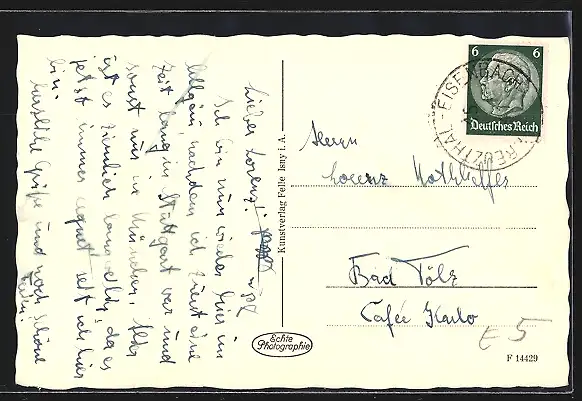 Lieber Lorenz!
Ich bin nun wieder hier im
Allgäu, nachdem ich zuerst eine
Zeit lang in Stuttgart war und
sonst nur in München. Aber
ist es ziemlich langweilig, da es
jetzt immer regnet seit ich hier
bin.
herzliche Grüße und noch schöne
Kunstverlag Felle Isny i. A.
Echte
Photographie
6 6
Deutsches Reich
EISENBACH
KREUZTHAL
Herrn
Lorenz
Bad Tölz
Cafée
E 5
F 14429